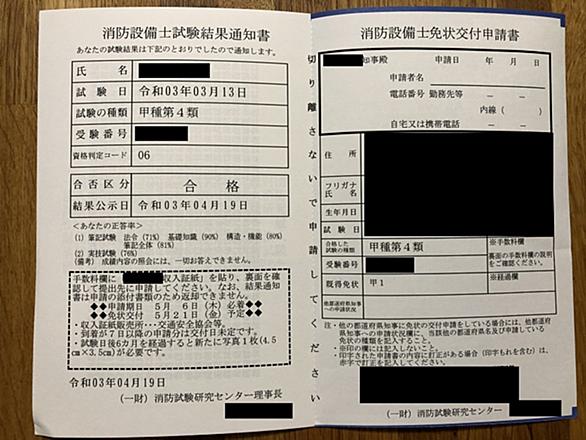 消防設備士試験結果通知書
あなたの試験結果は下記のとおりでしたので通知します。
氏 名
試 験 日 令和03年03月13日
試験の種類 甲種第4類
受験番号
資格判定コード 06
合否区分 合 格
結果公示日 令和03年04月19日
<あなたの正答率>
(1) 筆記試験 法令 (71%) 基礎知識 (90%) 構造・機能 (80%)
筆記全体 (81%)
(2) 実技試験 (76%)
(備考) 成績内容の照会には、一切お答えできません。
手数料欄に 収入証紙」を貼り、裏面を確
認して提出先に申請してください。なお、結果通
知書は申請の添付書類のため返却できません。
◆◆申請期日 5月 6日(木)必着◆◆
◆◆免状交付 5月21日(金)予定◆◆
・収入証紙販売所・・・交通安全協会等。
・到着が7日以降の申請分は交付日未定です。
・試験日後6カ月を経過すると新たに写真1枚(4.5
cm×3.5cm)が必要です。
令和03年04月19日
(一財) 消防試験研究センター理事長
切り離さないで申請してください
消防設備士免状交付申請書
知事殿 申請日 年 月 日
申請者名
電話番号 勤務先等 － －
内線 ( )
自宅又は携帯電話 － －
住 所
フリガナ
氏 名
生年月日
試 験 日
合格した試験の種類 甲種第4類
受験番号
既得免状 甲1
他都道府県知事への申請状況
※手数料欄
裏面の手数料欄の説明をご確認ください。
※経過欄
注・他の都道府県知事に免状の交付申請をしている場合には、他都道府
県知事への申請状況欄に、当該他の都道府県名及び申請している
免状の種類を記入すること。
・※印の欄には記入しないこと。
・印字された申請書の内容に訂正がある場合(印字もれを含む)は、
赤字で訂正を記入してください。
(一財) 消防試験研究センター